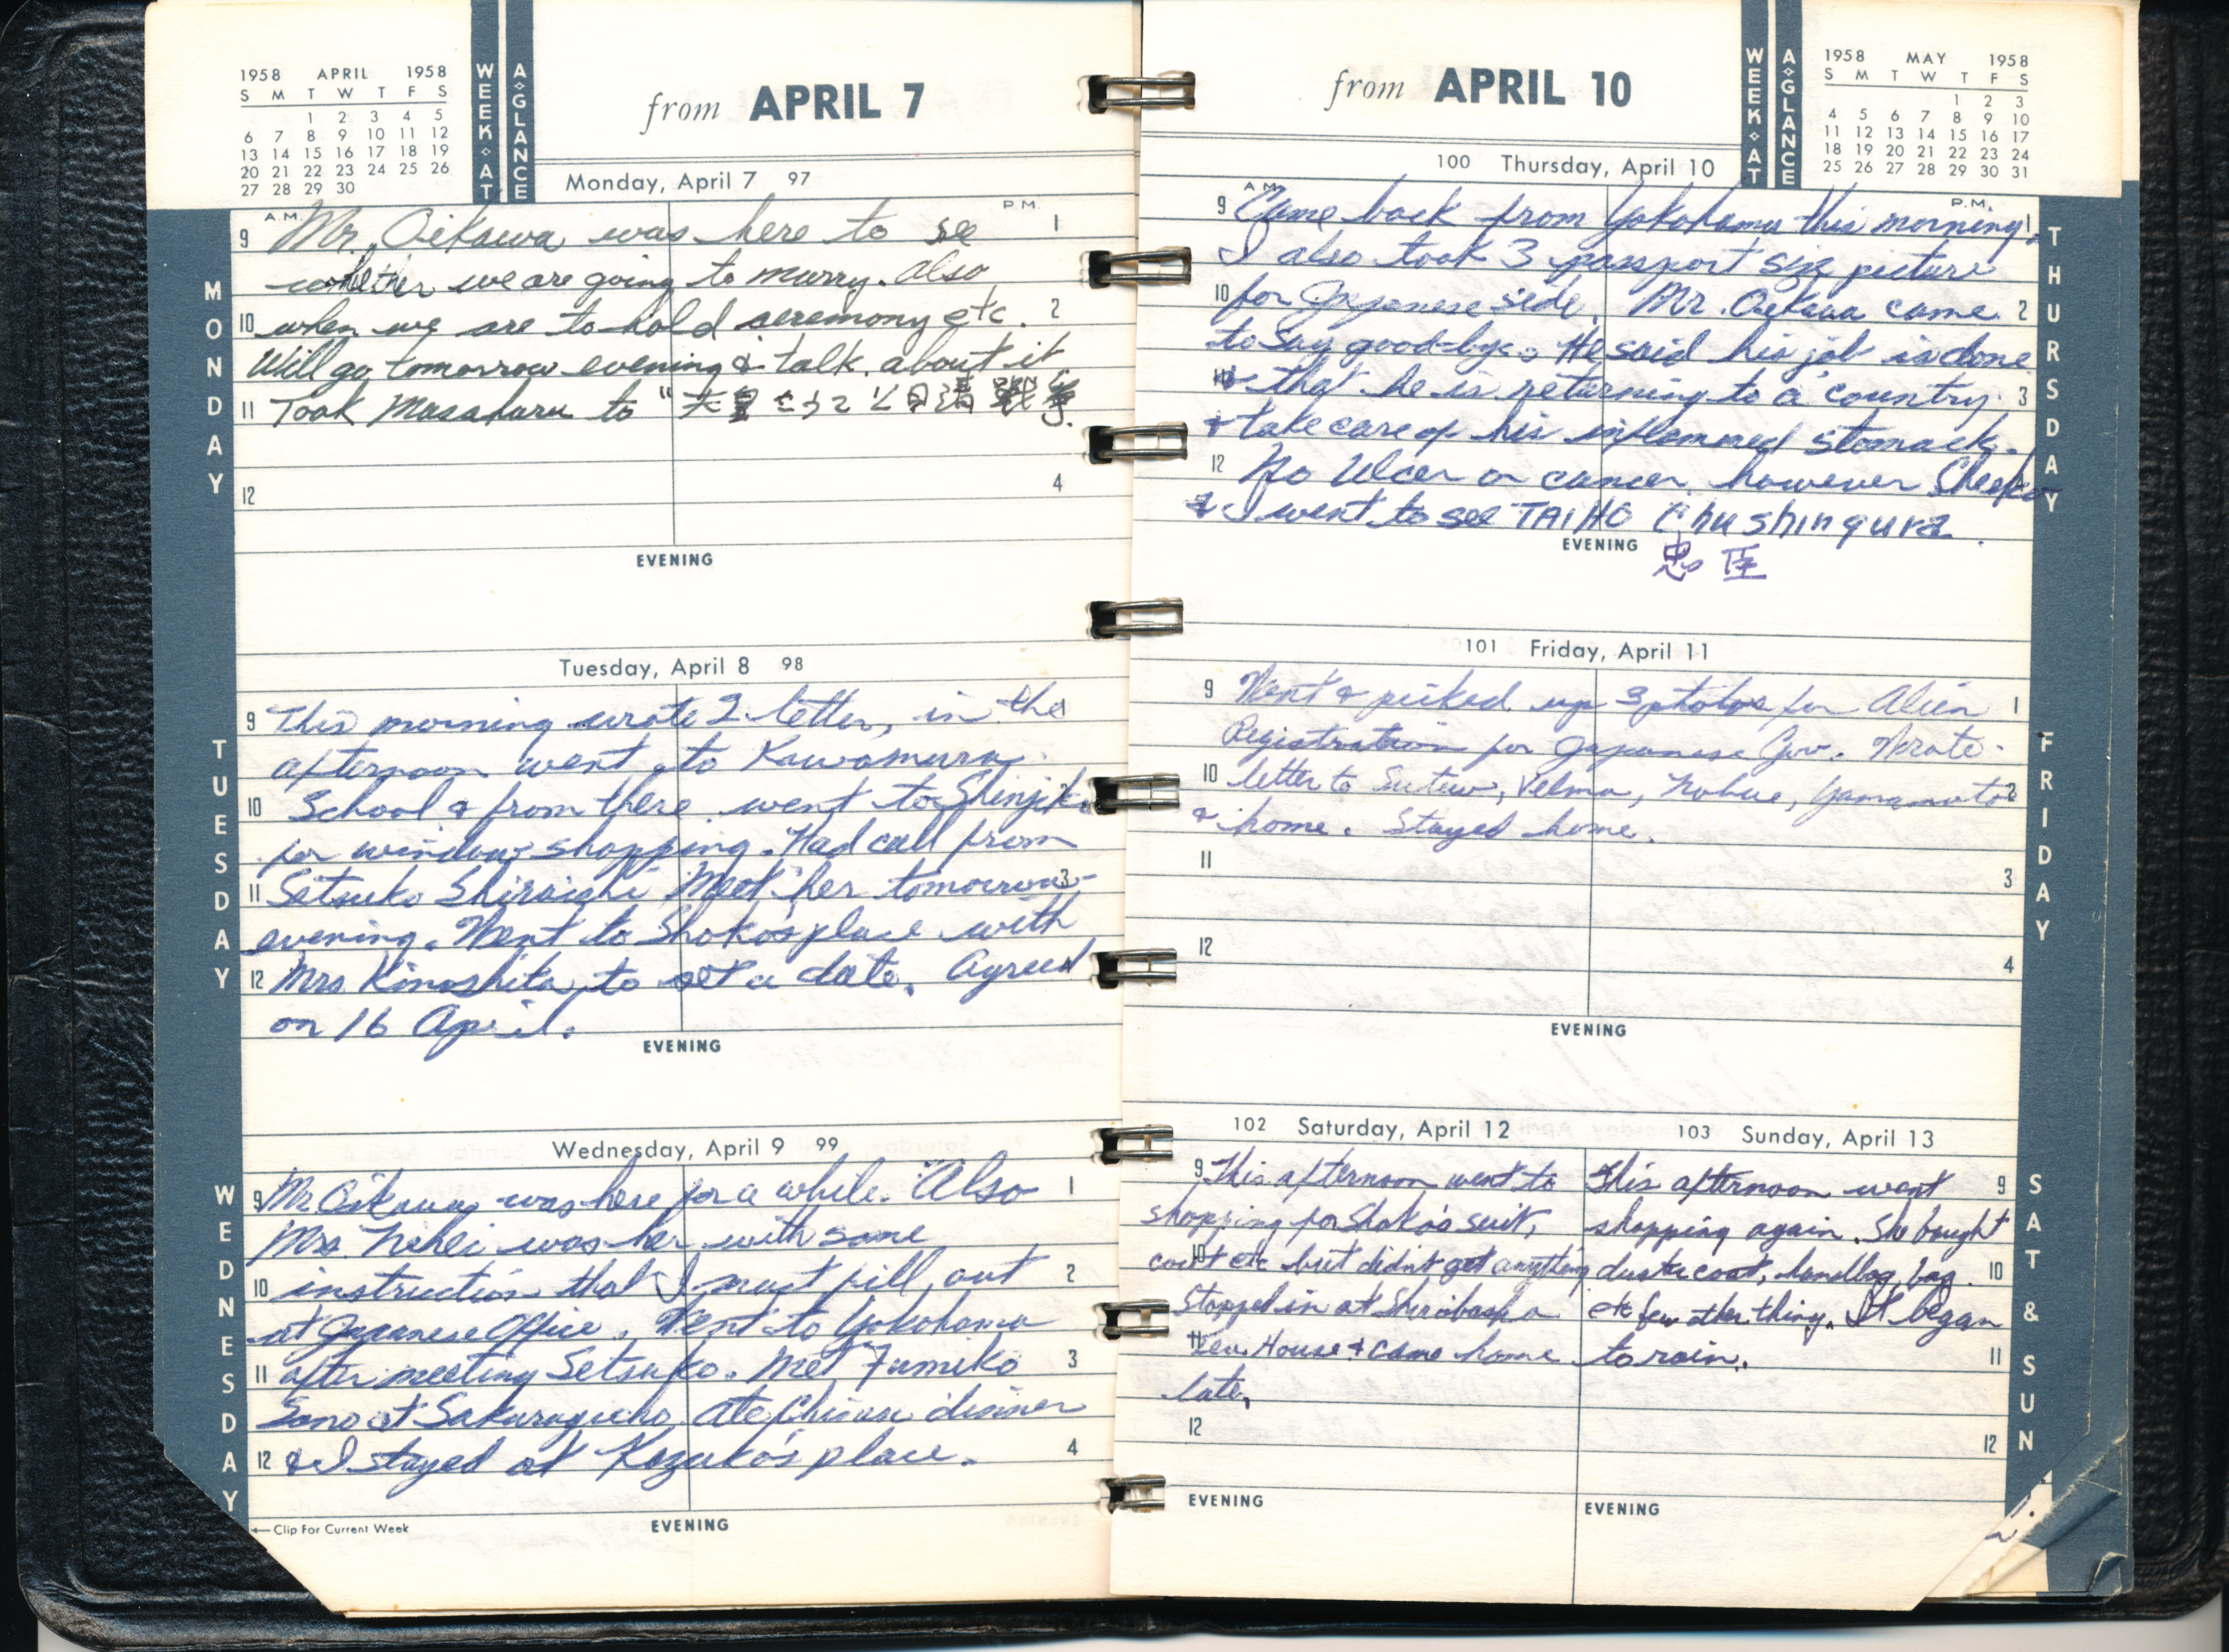 1958 APRIL 1958
S M T W T F S
1 2 3 4 5
6 7 8 9 10 11 12
13 14 15 16 17 18 19
20 21 22 23 24 25 26
27 28 29 30
WEEK AT A GLANCE
from APRIL 7
Monday, April 7 97
MONDAY
A.M. P.M.
9 Mr. Oikawa was here to see 1
whether we are going to marry. Also
10 when we are to hold ceremony etc. 2
Will go tomorrow evening & talk about it
11 Took Masaharu to "天皇 日清戦争.
12 4
EVENING
Tuesday, April 8 98
TUESDAY
9 This morning wrote 2 letter, in the
afternoon went to Kawamura
10 School & from there went to Shinjiku
for window shopping. Had call from
11 Setsuko Shiraishi Meet her tomorrow 3
evening. Went to Shoko's place with
12 Mrs Kinoshita to set a date. Agreed
on 16 April.
EVENING
Wednesday, April 9 99
WEDNESDAY
9 Mr Oikawa was here for a while. Also 1
Mrs. was her with some
10 instruction that I must fill out 2
at Japanese Office. Went to Yokohama
11 after meeting Setsuko. Met Fumiko 3
Sano at Sakuragicho. Ate Chinese dinner
12 & I stayed at Kazuko's place. 4
← Clip For Current Week
EVENING
from APRIL 10
WEEK AT A GLANCE
1958 MAY 1958
S M T W T F S
1 2 3
4 5 6 7 8 9 10
11 12 13 14 15 16 17
18 19 20 21 22 23 24
25 26 27 28 29 30 31
100 Thursday, April 10
THURSDAY
A.M. P.M.
9 Came back from Yokohama this morning. 1
I also took 3 passport size picture
10 for Japanese side. Mr. Oikawa came 2
to say good-bye. He said his job is done
11 & that he is returning to a country 3
& take care of his inflammed stomach.
12 No Ulcer or cancer however Shoko
& I went to see TAIHO Chushingura.
EVENING 忠臣
101 Friday, April 11
FRIDAY
9 Went & picked up 3 photos for Alien 1
Registration for Japanese Gov. Wrote
10 letter to Velma, Nobue, Yamamoto 2
& home. Stayed home.
11
3
12
4
EVENING
102 Saturday, April 12
9 This afternoon went to
shopping for Shoko's suit,
10 coat etc but didn't get anything
Stopped in at
11 House & came home
late.
12
EVENING
103 Sunday, April 13
SAT & SUN
This afternoon went 9
shopping again. She bought
duster coat, handbag, bag. 10
etc few other thing. It began
to rain. 11
12
EVENING